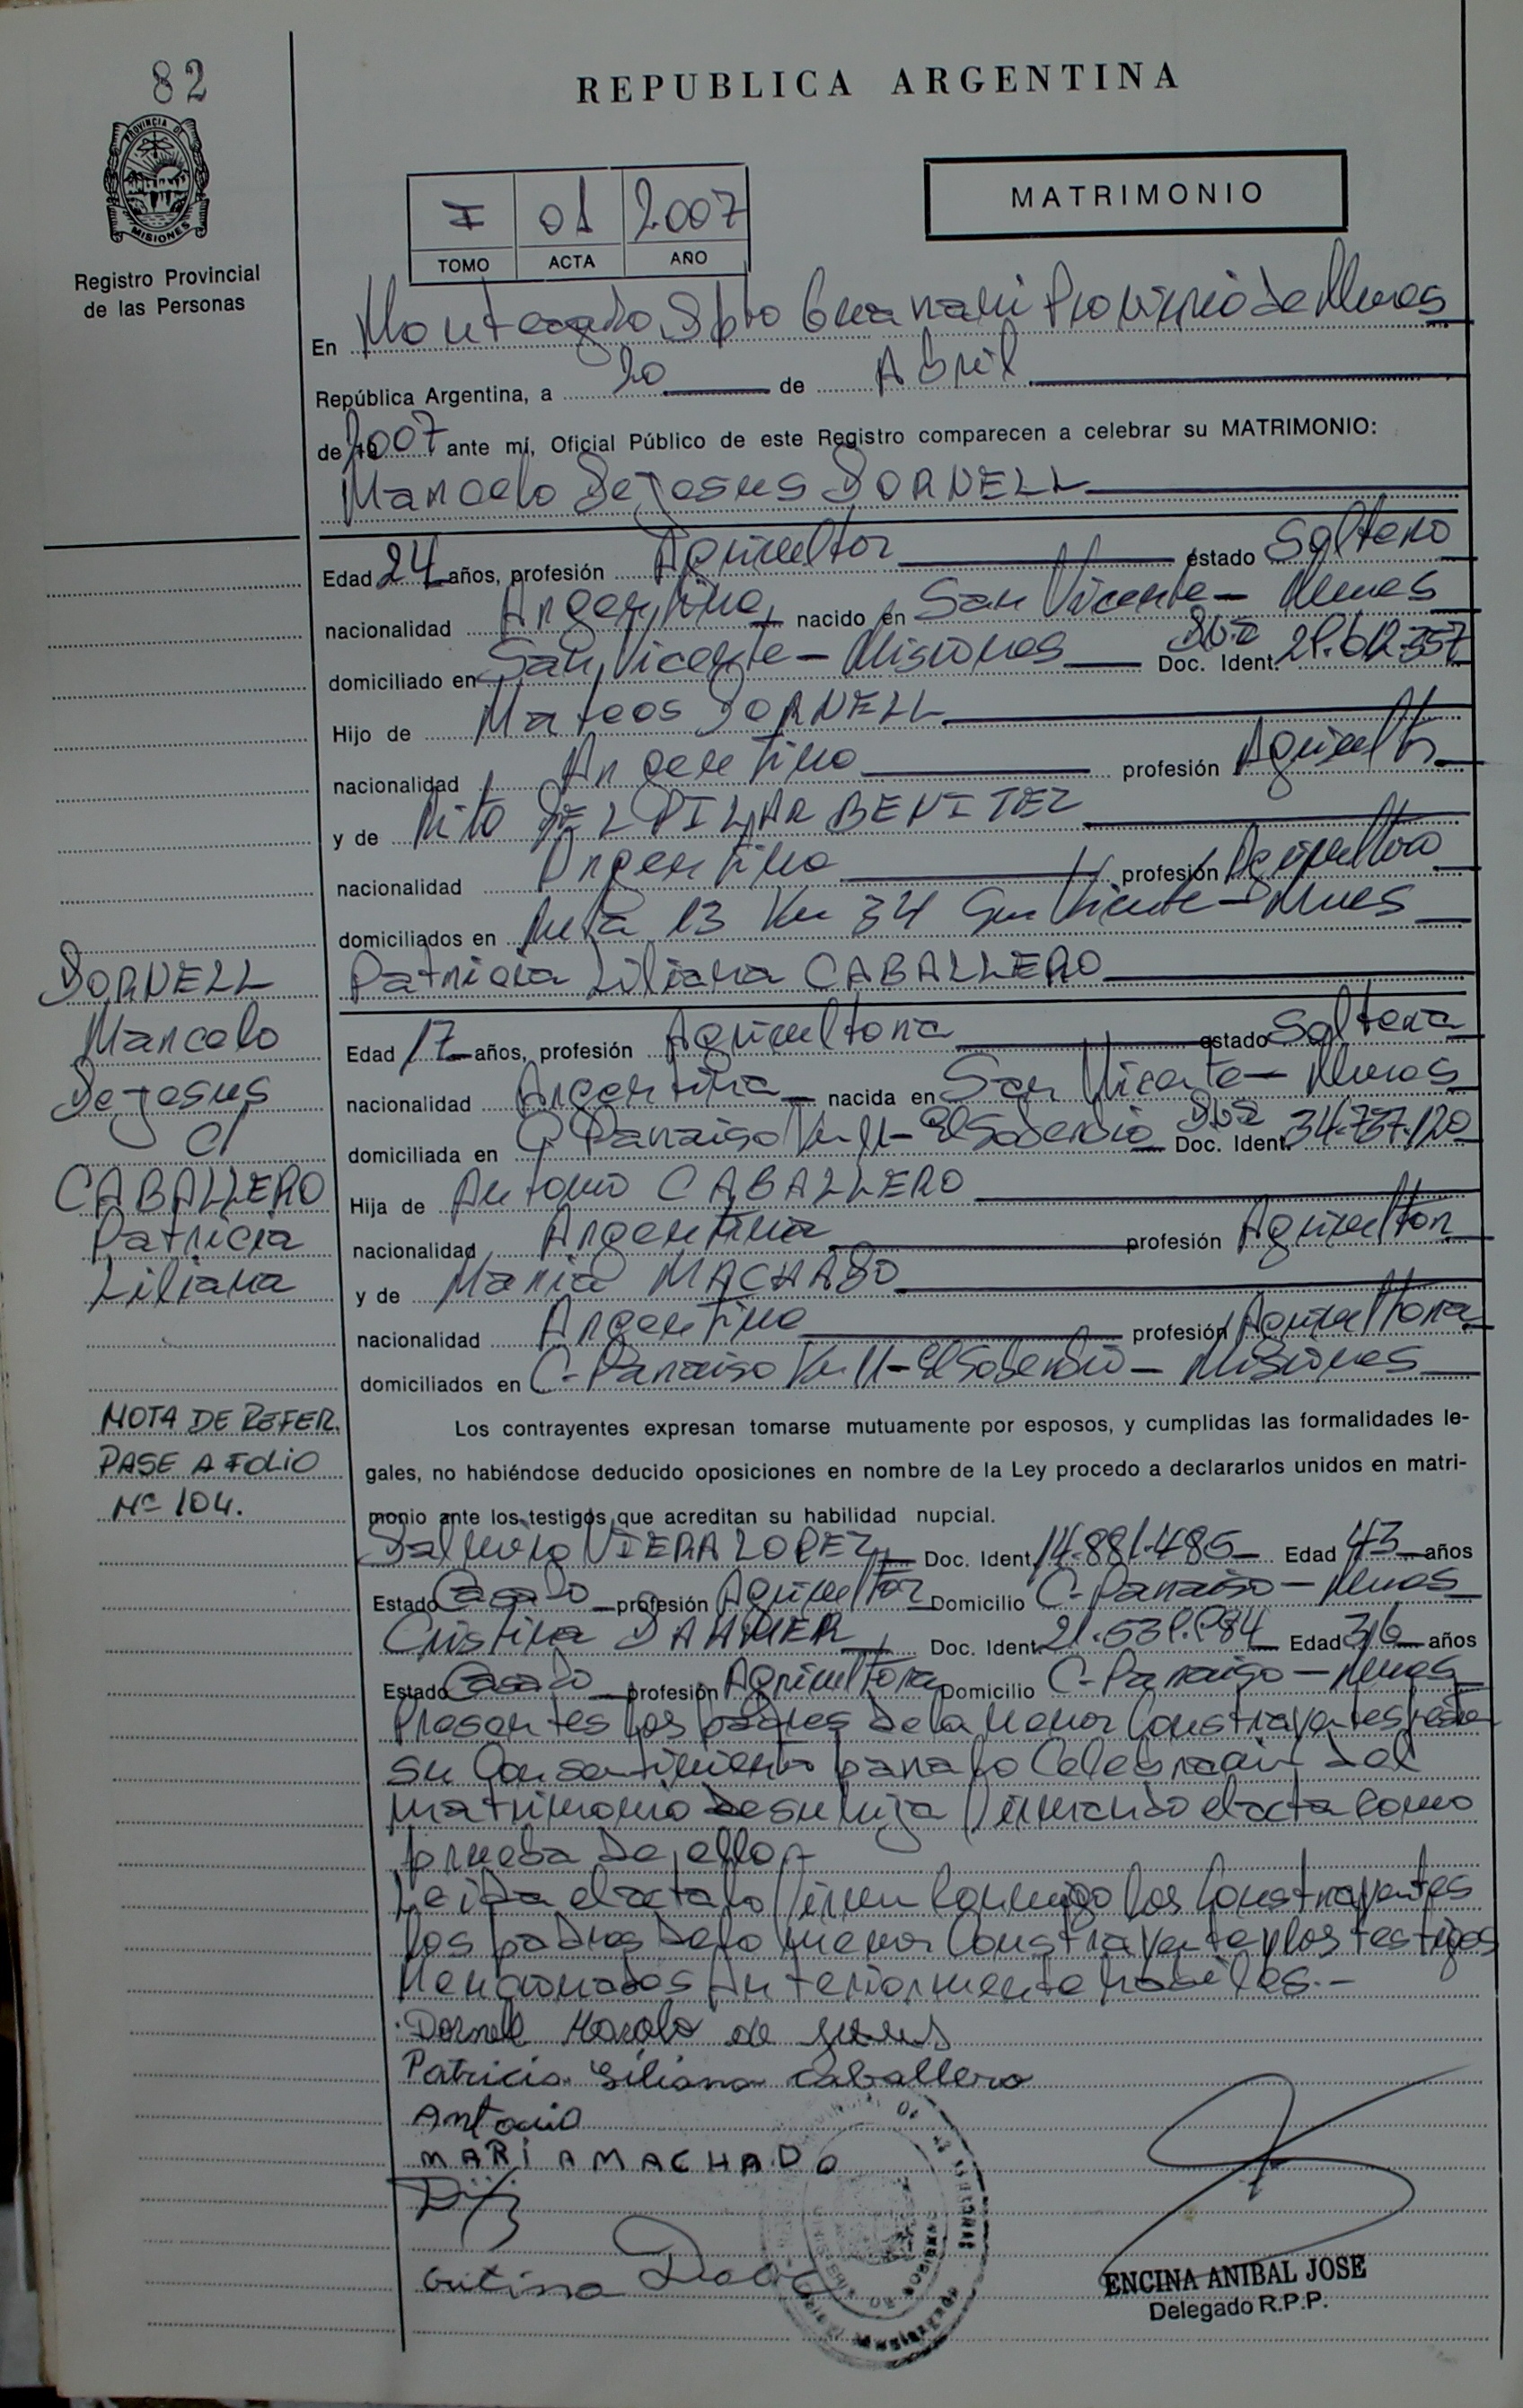 82
REPUBLICA ARGENTINA
PROVINCIA DE
MISIONES
Registro Provincial
de las Personas
I 01 2007
TOMO ACTA AÑO
MATRIMONIO
En Monteagudo, Dpto Guarani Provincia de Mnes
República Argentina, a 20 de Abril
de 2007 ante mí, Oficial Público de este Registro comparecen a celebrar su MATRIMONIO:
Marcelo De Jesus DORNELL
Edad 24 años, profesión Agricultor estado Soltero
nacionalidad Argentina nacido en San Vicente - Mnes
domiciliado en San Vicente - Misiones Doc. Ident.
Hijo de Mateos DORNELL
nacionalidad Argentino profesión Agricultor
y de Rita DEL PILAR BENITEZ
nacionalidad Argentina profesión Agricultora
domiciliados en Ruta 13 Km 34 San Vicente - Mnes
Patricia Liliana CABALLERO
Edad 17 años, profesión Agricultora estado Soltera
nacionalidad Argentina nacida en San Vicente - Mnes
domiciliada en C. Paraiso Km 11 - El Soberbio Doc. Ident. 34.737.120
Hija de Antonio CABALLERO
nacionalidad Argentina profesión Agricultor
y de Maria MACHADO
nacionalidad Argentina profesión Agricultora
domiciliados en C. Paraiso Km 11 - El Soberbio - Misiones
DORNELL
Marcelo
De Jesus
c/
CABALLERO
Patricia
Liliana
NOTA DE REFER.
PASE A FOLIO
Nº 104.
Los contrayentes expresan tomarse mutuamente por esposos, y cumplidas las formalidades le-
gales, no habiéndose deducido oposiciones en nombre de la Ley procedo a declararlos unidos en matri-
monio ante los testigos que acreditan su habilidad nupcial.
VIERA LOPEZ Doc. Ident. 14.881.485 Edad 43 años
Estado Casado profesión Agricultor Domicilio C. Paraiso - Mnes
Cristina Doc. Ident. Edad 36 años
Estado Casado profesión Agricultora Domicilio C. Paraiso - Mnes
Presentes los padres de la menor Constrayentes
su Consentimiento para la Celebracion del
matrimonio de su hija firmando el acta como
prueba de ello.-
Leida el acta la firman conmigo los Constrayentes
los padres de la menor Constrayente y los testigos
Mencionados Anteriormente habiles.-
Dornell Marcelo de Jesus
Patricia Liliana Caballero
Antonio
MARIA MACHADO
ENCINA ANIBAL JOSE
Delegado R.P.P.